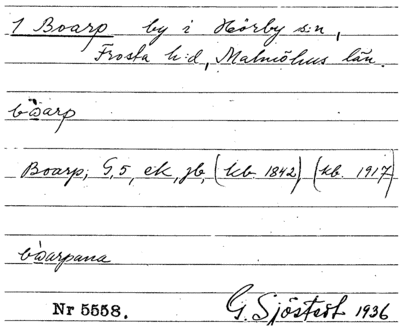 1 Boarp by i Hörby s:n,
Frosta h:d, Malmöhus län.
bòarp
Boarp; G, 5, ek, jb, (kb. 1842), (kb. 1917)
bòarpana
Nr 5558. G. Sjöstedt 1936